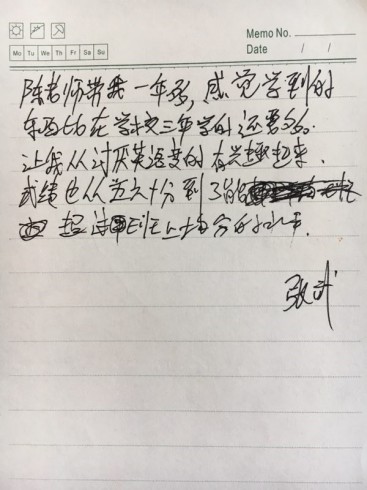 Memo No.
Mo Tu We Th Fr Sa Su
Date / /
陈老师带我一年多,感觉学到的
东西比在学校三年学的还要多。
让我从讨厌英语变的有兴趣起来.
成绩也从五六十分到了能
超过
分的水平.
张